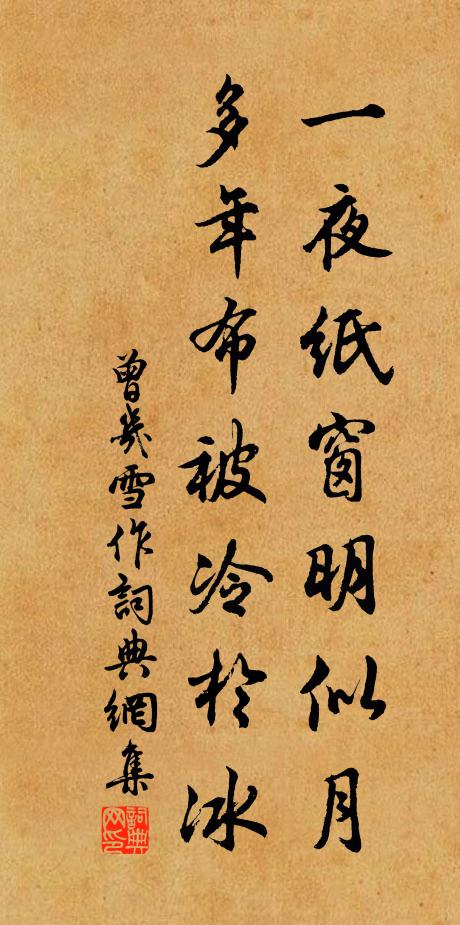 一夜紙窗明似月
多年布被冷於冰
曾幾雪作詞典網集
詞典网印